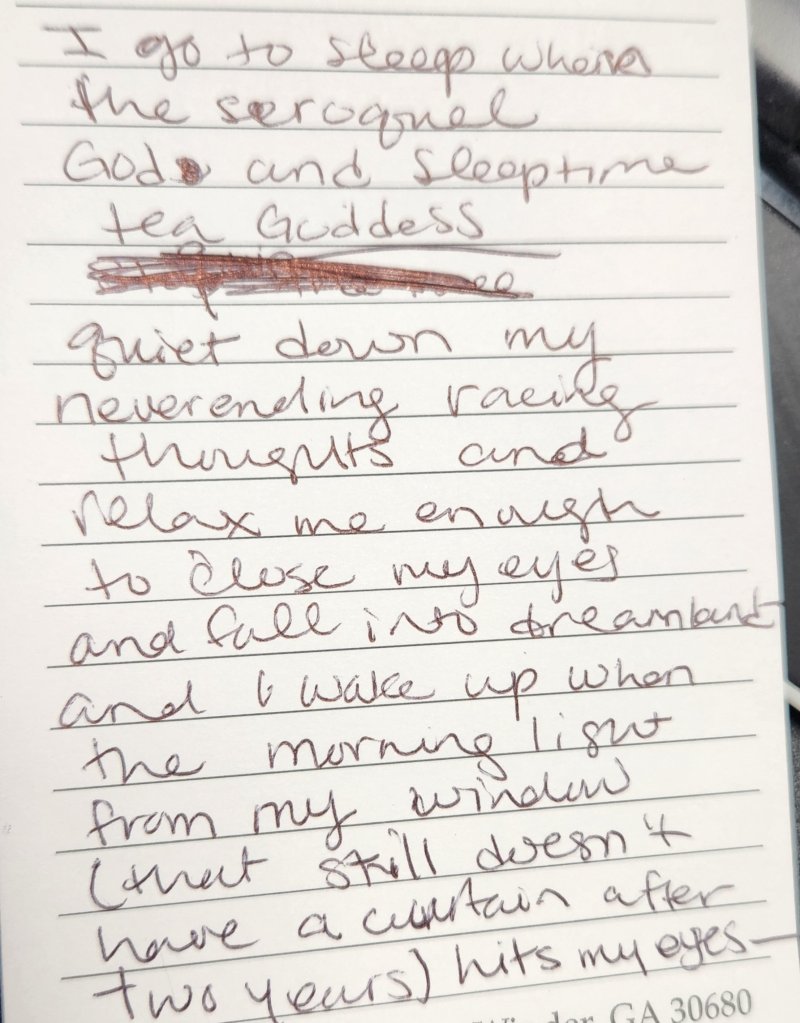 I go to sleep when
the seroquel
God and Sleeptime
tea Goddess
quiet down my
neverending racing
thoughts and
relax me enough
to close my eyes
and fall into dreamland
and I wake up when
the morning light
from my window
(that still doesn't
have a curtain after
two years) hits my eyes—
GA 30680